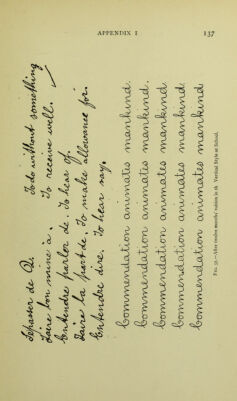 APPENDIX I 137
Se passer de Qc. To do without something
Faire bon mine à. To receive well.
Entendre parler de. To hear of.
Faire la part de. To make allowance for.
Entendre dire. To hear say.
Commendation animates mankind.
Commendation animates mankind.
Commendation animates mankind
Commendation animates mankind.
Commendation animates mankind
Vertical Style at School.